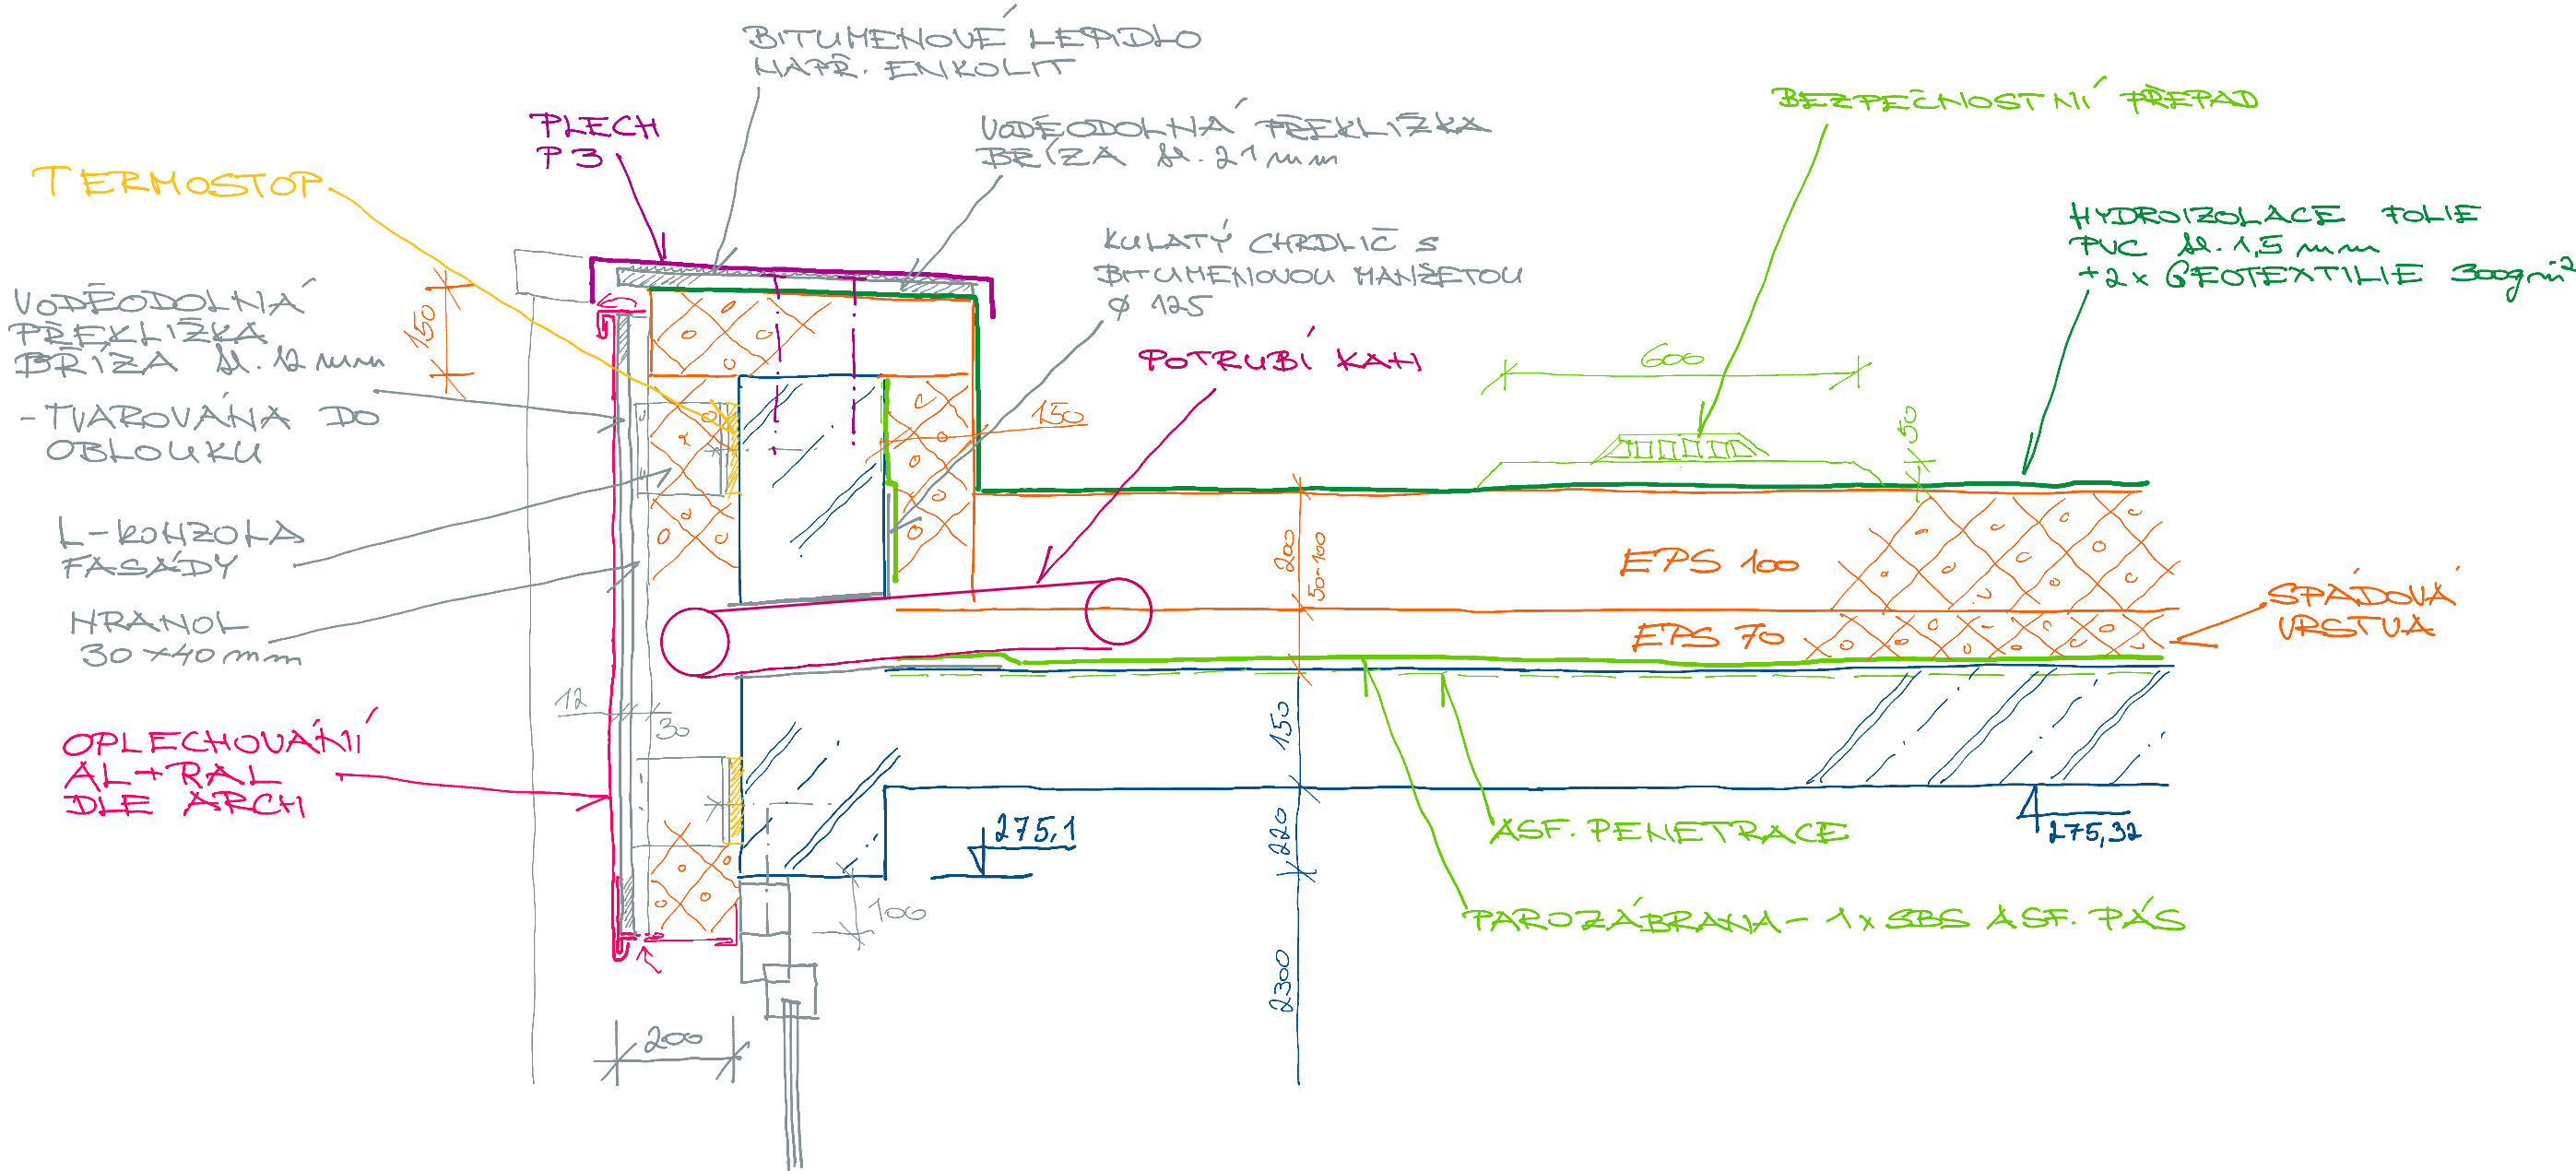 BITUMENOVÉ LEPIDLO
NAPŘ. ENKOLIT
PLECH
P3
VODĚODOLNÁ PŘEKLIŽKA
BŘÍZA tl. 21 mm
BEZPEČNOSTNÍ PŘEPAD
TERMOSTOP
HYDROIZOLACE FOLIE
PVC tl. 1,5 mm
+ 2x GEOTEXTILIE 300g/m²
KULATÝ CHRDLIČ S
BITUMENOVOU MANŽETOU
Ø 125
VODĚODOLNÁ
PŘEKLIŽKA
BŘÍZA tl. 12 mm
- TVAROVÁNA DO
OBLOUKU
150
POTRUBÍ KAN
600
150
50
L-KONZOLA
FASÁDY
HRANOL
30×40 mm
200
50-100
EPS 100
EPS 70
SPÁDOVÁ
VRSTVA
12
30
150
OPLECHOVÁNÍ
AL+RAL
DLE ARCH
275,1
220
ASF. PENETRACE
275,32
100
PAROZÁBRANA - 1x SBS ASF. PÁS
2300
200